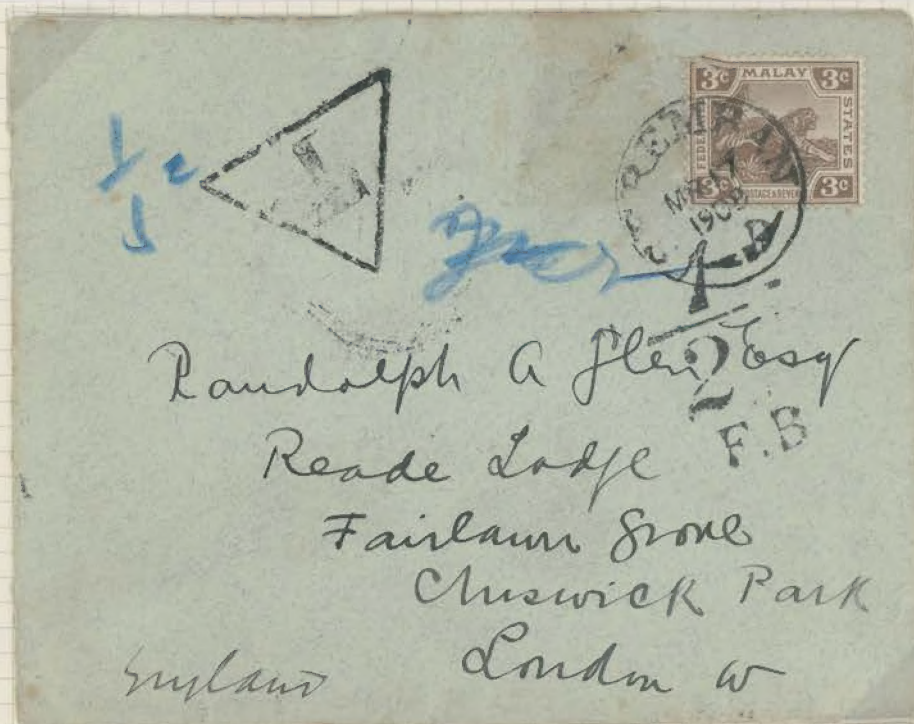 3c MALAY 3c
FEDERATED STATES
3c POSTAGE & REVENUE 3c
SEREMBAN
17
1909
D
T
1/2
F.B
Randolph A Glen Esqr
Reade Lodge
Fairlawn Grove
Chiswick Park
London W
England